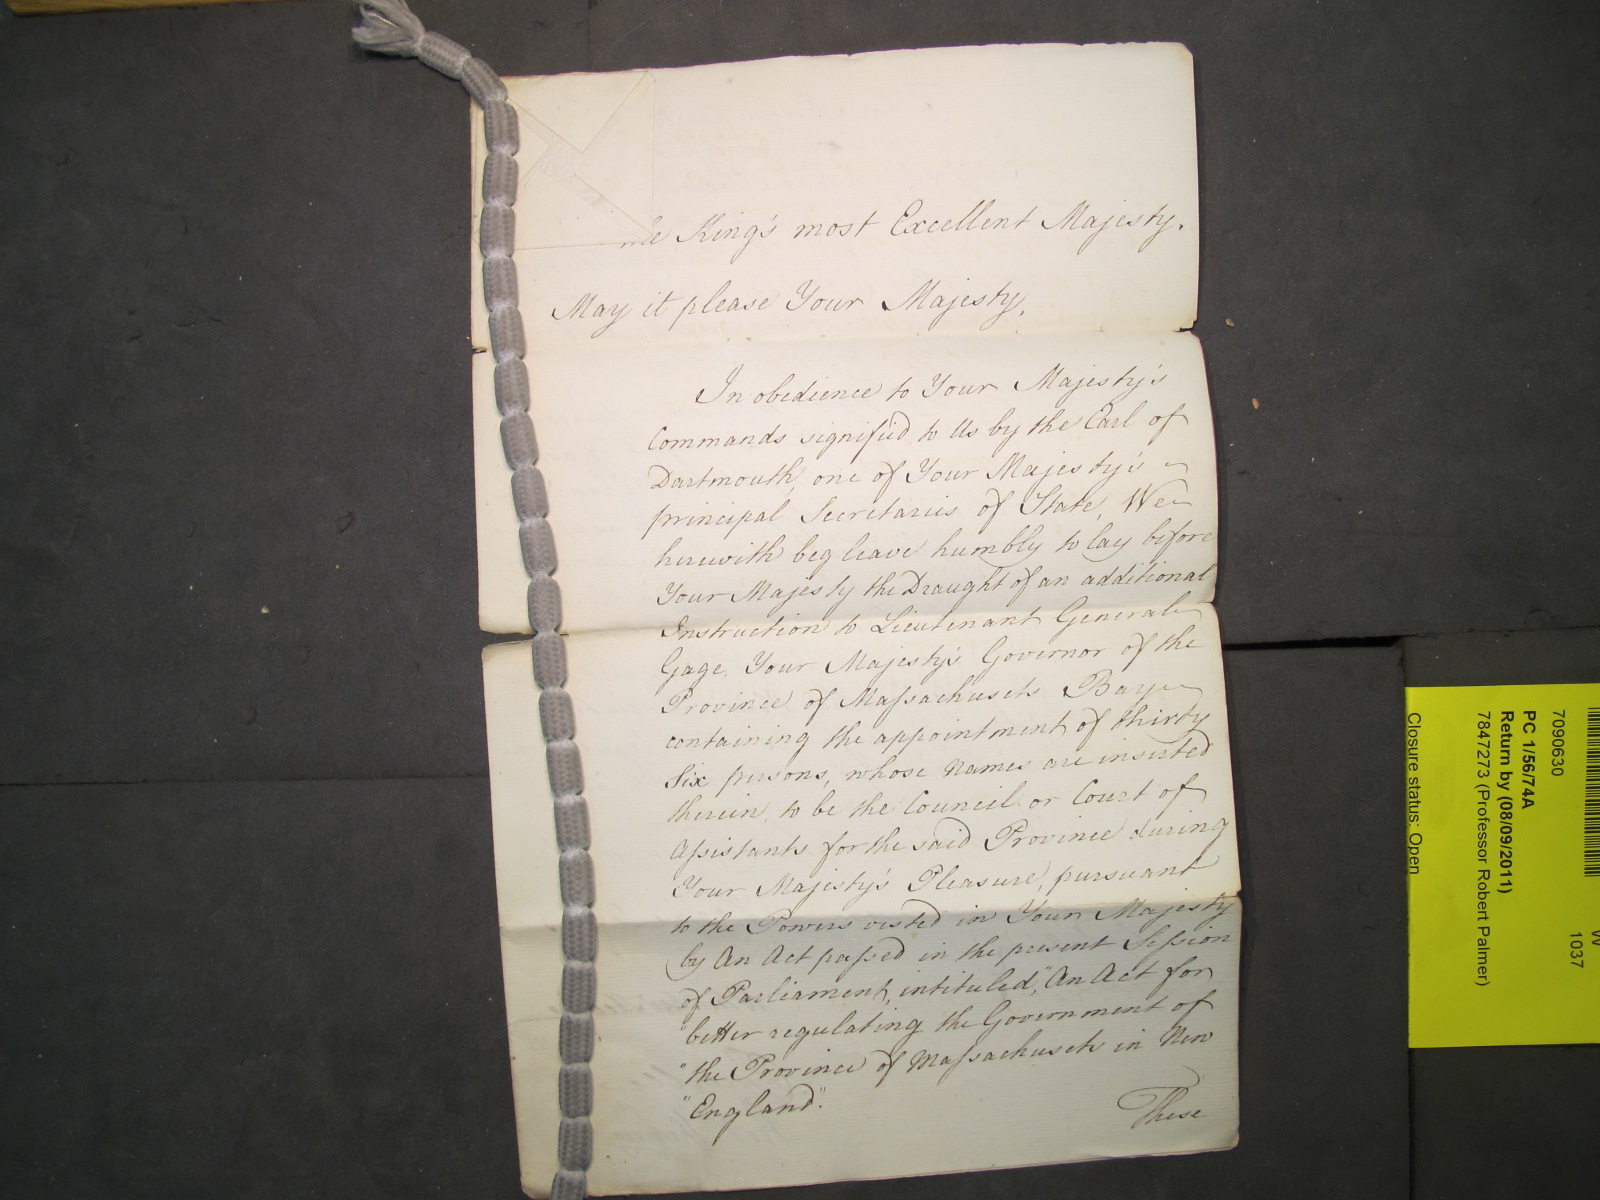 King's most Excellent Majesty.
May it please Your Majesty,
In obedience to Your Majesty's
Commands signified to Us by the Earl of
Dartmouth, one of Your Majesty's
principal Secretaries of State, We
herewith beg leave humbly to lay before
Your Majesty the Draught of an additional
Instruction to Lieutenant General
Gage, Your Majesty's Governor of the
Province of Massachusets Bay
containing the appointment of thirty
Six persons, whose Names are inserted
therein, to be the Council or Court of
Assistants for the said Province during
Your Majesty's Pleasure, pursuant
to the Powers vested in Your Majesty
by An Act passed in the present Session
of Parliament, intituled, "An Act for
"better regulating the Government of
"the Province of Massachusets in New
"England".
These
7090630
PC 1/56/74A
Return by (08/09/2011)
7847273 (Professor Robert Palmer)
Closure status: Open
W
1037